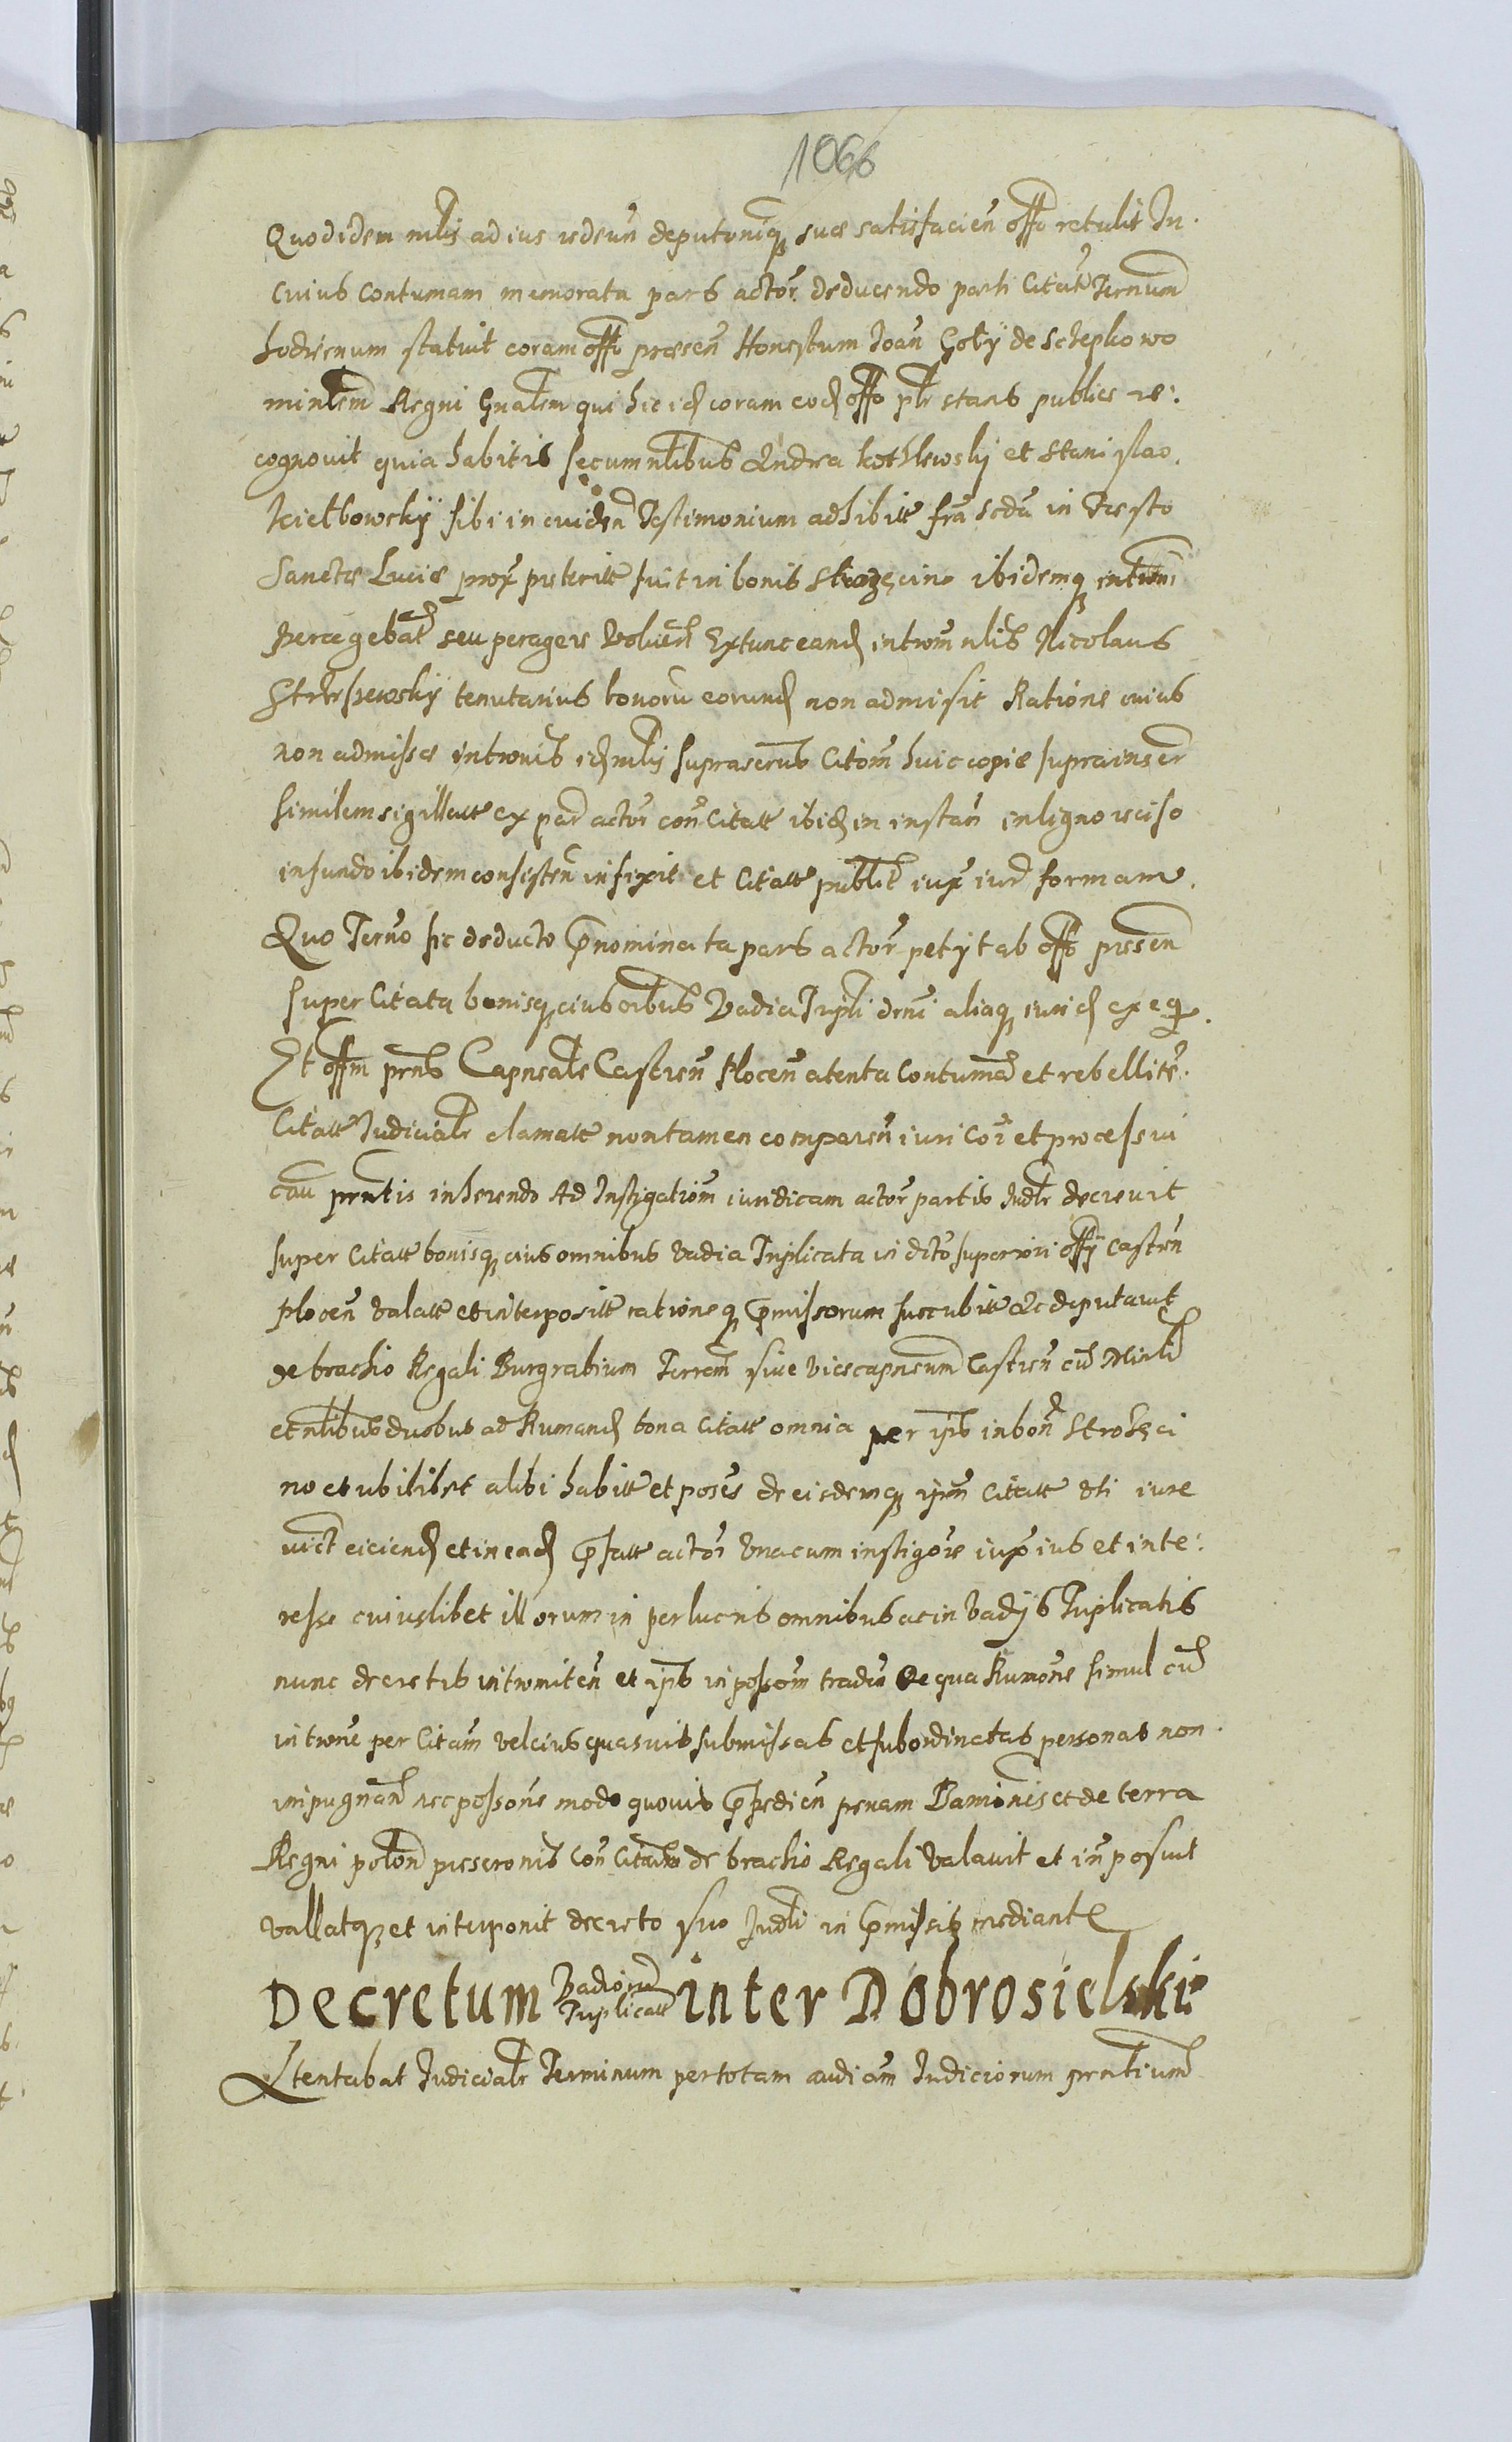 1066
Quod idem nlis ad ius redeun deputoniq suae satisfacien offo retulit In
cuius Contumam memorata pars actor deducendo parti Citat Ternum
hodiernum statuit coram offo præsen Honestum Joan Goły de Sczepkowo
minlem Regni Gnalem qui hic id coram eod offo plr stans publice re:
cognovit quia habitis secum nlibus Andrea Kothlewsky et Stanislao
Kiełbowsky sibi in eviden Testimonium adhibitt fra scda in Festo
Sanctæ Luciæ prox preteritt fuit in bonis ibidemq introm
Peragebat seu peragere Voluerit Extunc eand introm nlis Nicolaus
tenutarius bonoru eorund non admisit Ratione cuius
non admissæ intronis id nlis suprascrus Citom huic copiæ suprainser
similem sigillatt ex par actor con Citatt ibid in instan in ligno reciso
in fundo ibidem consisten infixit et Citatt publit iux iur formam.
Quo Terno sic deducto prnominata pars actor petyt ab offo præsen
super Citata bonisq eius oibus Vadia Tripli derni aliaq iurid exeq.
Et offm prns Capneale Castren Plocen atenta Contuma et rebellite
Citatt Judicialr clamatt non tamen comparen iuri coi et processui
cau prntis inherendo Ad Instigationm iuridicam actor partis Judlr decrevit
super Citatt bonisq eius omnibus vadia Triplicata in dicto superiori offy Castren
Plocen valatt et interpositt rationeq prmissorum succubitt Ac deputavit
de brachio Regali Burgrabium Terrem sive Vicecapneum Castren cu Minli
et nlibus duobus ad Rumand bona Citatt omnia per ips in bon
no et ubilibet alibi habitt et poses de eisdemq ipm Citatt uti iure
vict eiciend et in ead prfatt actor Una cum instigore iux ius et inte:
resse cuiuslibet illorum in perlucris omnibus ac in Vadys Triplicatis
nunc decretis intromiten et ips in possom tradin De qua Rumone simul cu
introne per Citam vel eius quasuis submissas et subordinatas personas non
inpugnan nec possone modo quovis prpedien penam Bamionis et de terra
Regni polon proscronis con Citatum de brachio Regali Valauit et in posuit
vallatq et interponit decreto suo Judli in prmissis mediante
Decretum Vadioru Triplicatt inter Dobrosielski
Attentabat Judicialr Terminum per totam audiam Judiciorum prntium